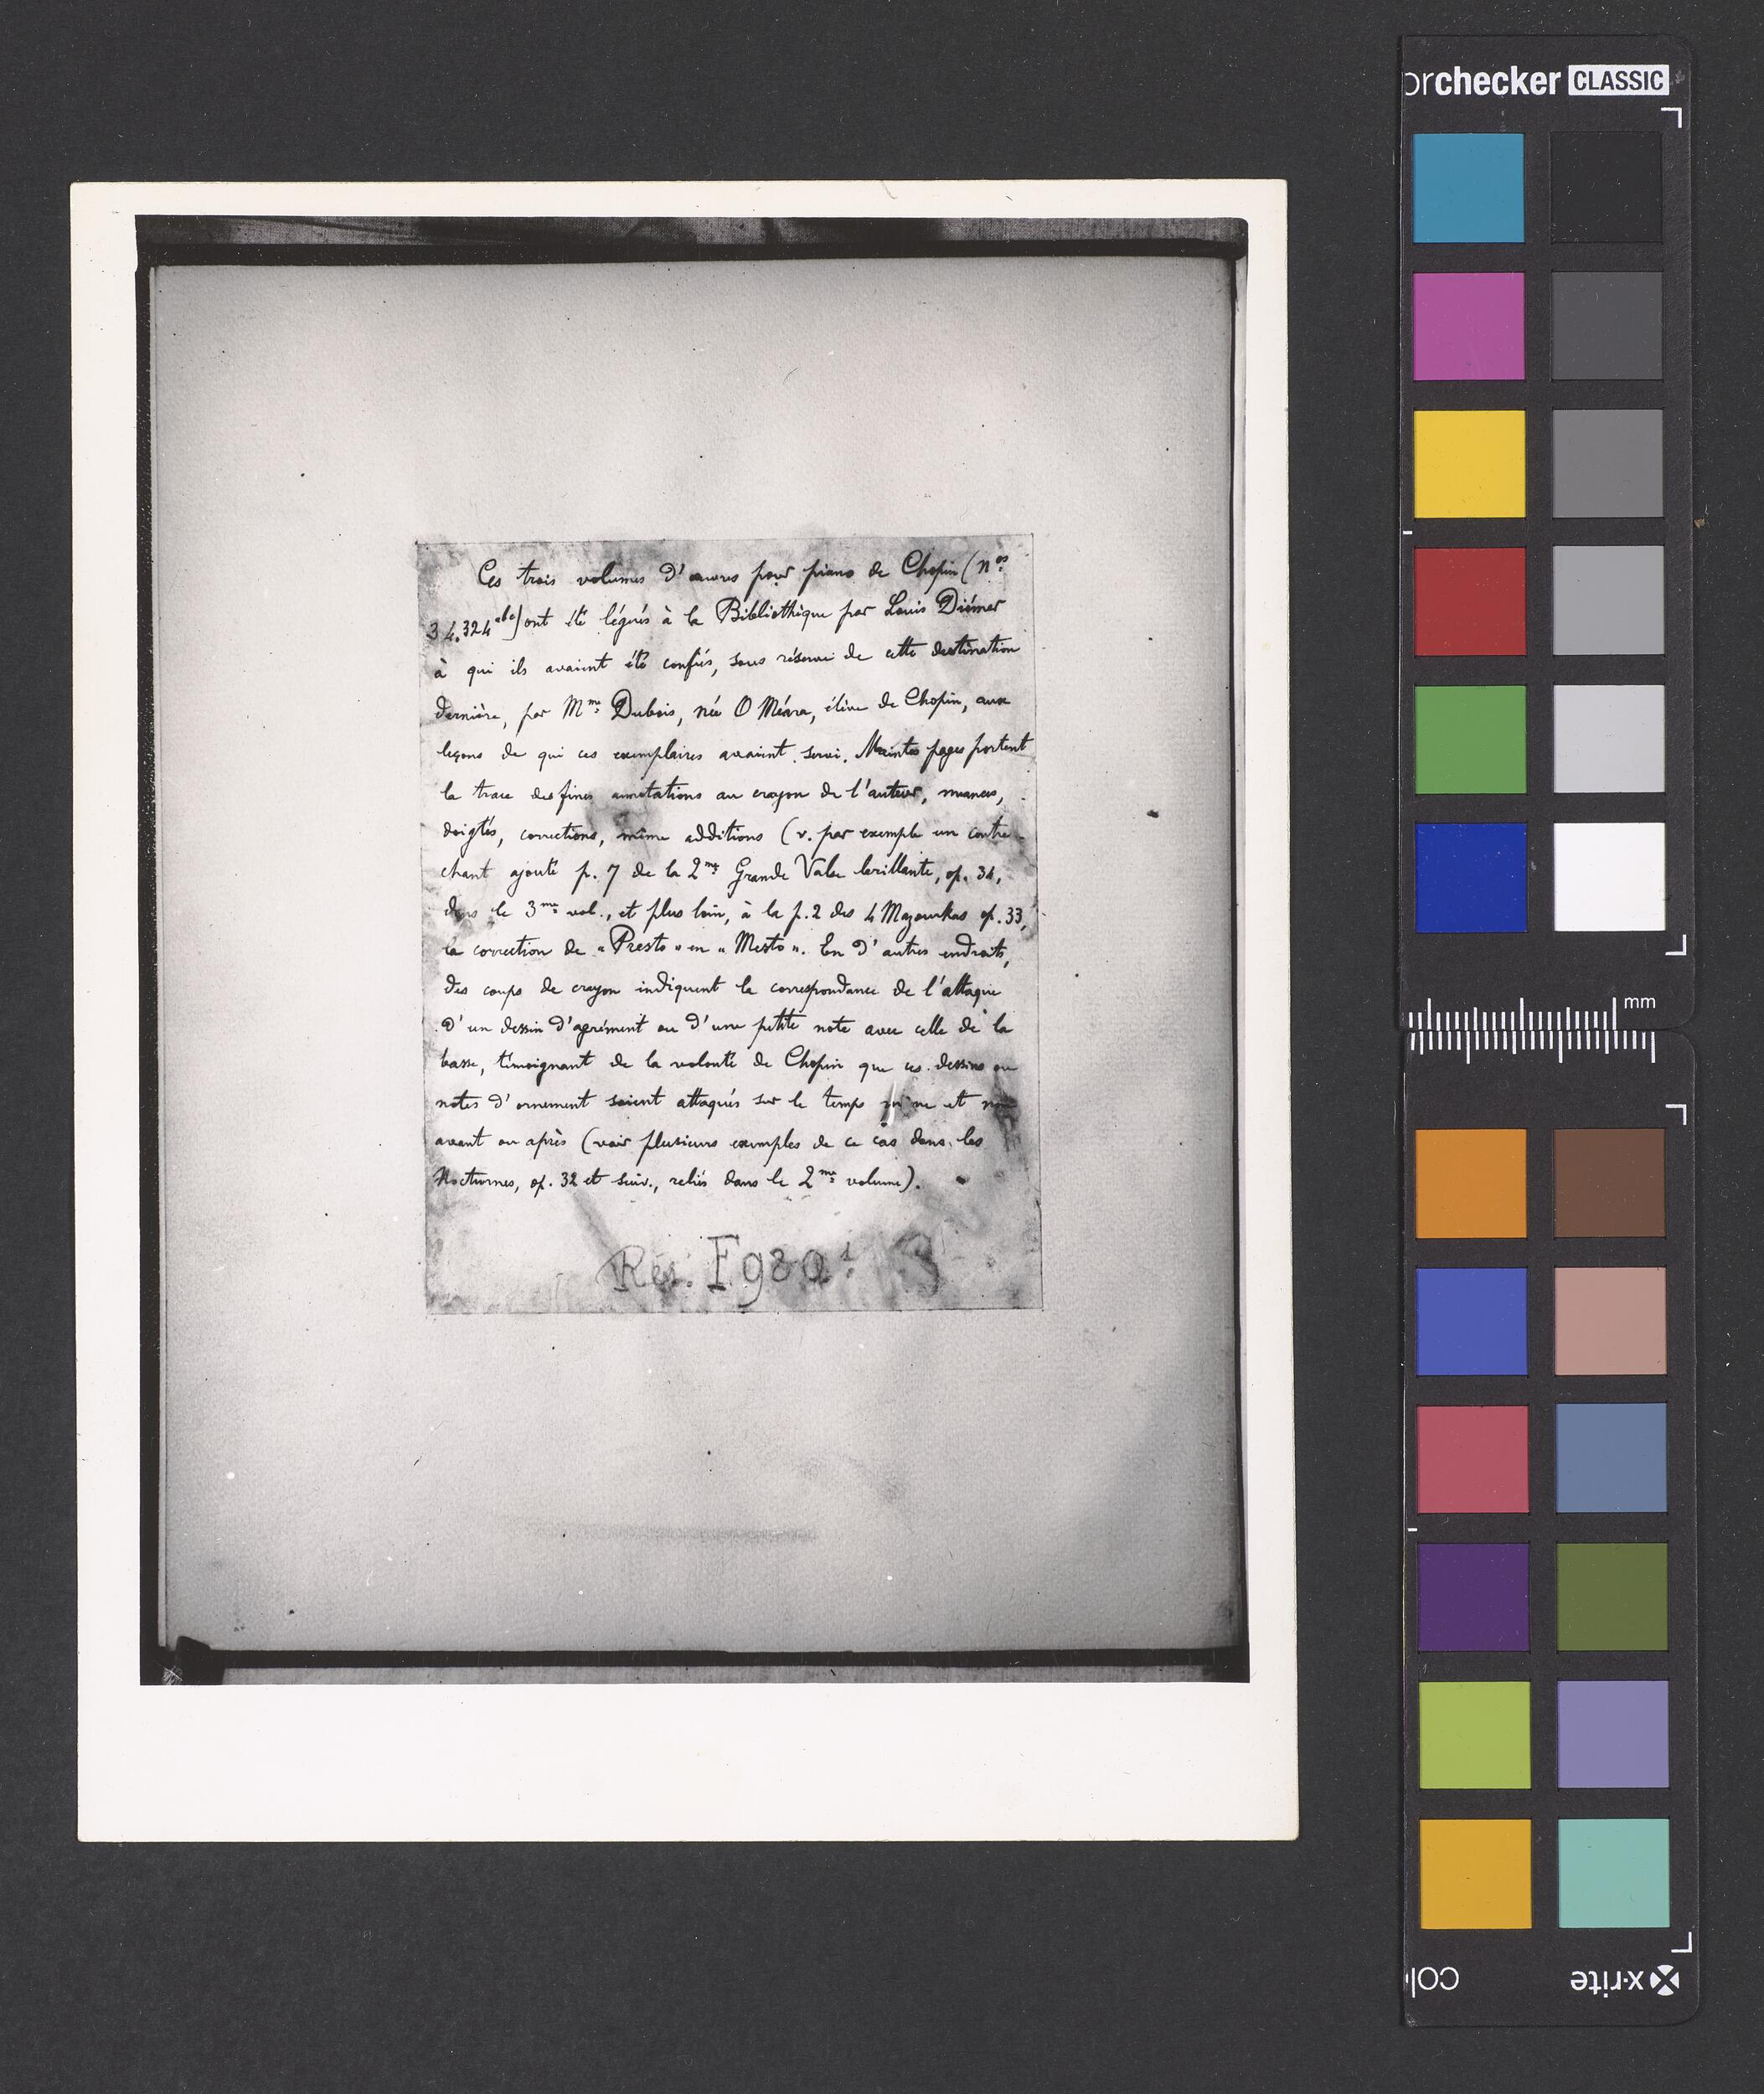 orchecker CLASSIC
Ces trois volumes d'œuvres pour piano de Chopin (Nos
34.324abc) ont été légués à la Bibliothèque par Louis Diémer
à qui ils avaient été confiés, sous réserve de cette destination
dernière, par Mme Dubois, née O Méara, élève de Chopin, aux
leçons de qui ces exemplaires avaient servi. Maintes pages portent
la trace des fines annotations au crayon de l'auteur, nuances,
doigtés, corrections, même additions (v. par exemple un contre-
chant ajouté p. 7 de la 2me Grande Valse brillante, op. 34,
dans le 3me vol., et plus loin, à la p. 2 des 4 Mazourkas op. 33,
la correction de "Presto" en "Mesto". En d'autres endroits,
des coups de crayon indiquent la correspondance de l'attaque
d'un dessin d'agrément ou d'une petite note avec celle de la
basse, témoignant de la volonté de Chopin que ces dessins ou
notes d'ornement soient attaqués sur le temps même et non
avant ou après (voir plusieurs exemples de ce cas dans les
Nocturnes, op. 32 et suiv., reliés dans le 2me volume).
Rés. F 980
mm
x-rite
col